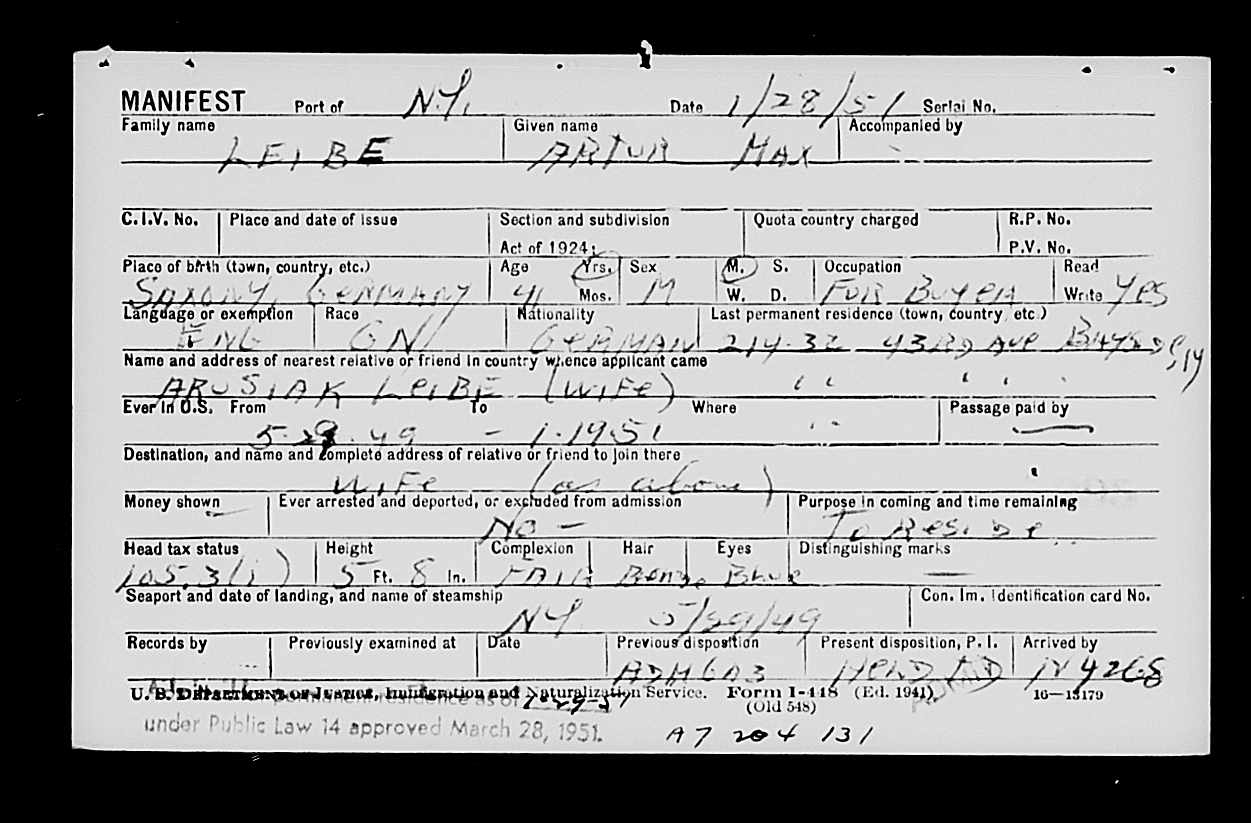 MANIFEST Port of N.Y. Date 1/28/51 Serial No.
Family name Given name Accompanied by
LEIBE ARTUR MAX
C.I.V. No. Place and date of issue Section and subdivision Quota country charged R.P. No.
Act of 1924: P.V. No.
Place of birth (town, country, etc.) Age Yrs. Sex M. S. Occupation Read
SAXONY, GERMANY 41 Mos. M W. D. FUR BUYER Write Yes
Language or exemption Race Nationality Last permanent residence (town, country, etc.)
ENG GERMAN 214-32 43RD AVE
Name and address of nearest relative or friend in country whence applicant came
ARUSIAK LEIBE (WIFE) " "
Ever in U.S. From To Where Passage paid by
5-29-49 - 1-19-51
Destination, and name and complete address of relative or friend to join there
WIFE (as above)
Money shown Ever arrested and deported, or excluded from admission Purpose in coming and time remaining
No - To Reside
Head tax status Height Complexion Hair Eyes Distinguishing marks
105.3(1) 5 Ft. 8 In. FAIR Blue
Seaport and date of landing, and name of steamship Con. Im. Identification card No.
NY 5/29/49
Records by Previously examined at Date Previous disposition Present disposition, P. I. Arrived by
HELD
U. S. Department of Justice, Immigration and Naturalization Service. Form I-448 (Ed. 1941) 16—13179
permanent residence as of 1-29-51 (Old 548)
under Public Law 14 approved March 28, 1951. A7 204 131